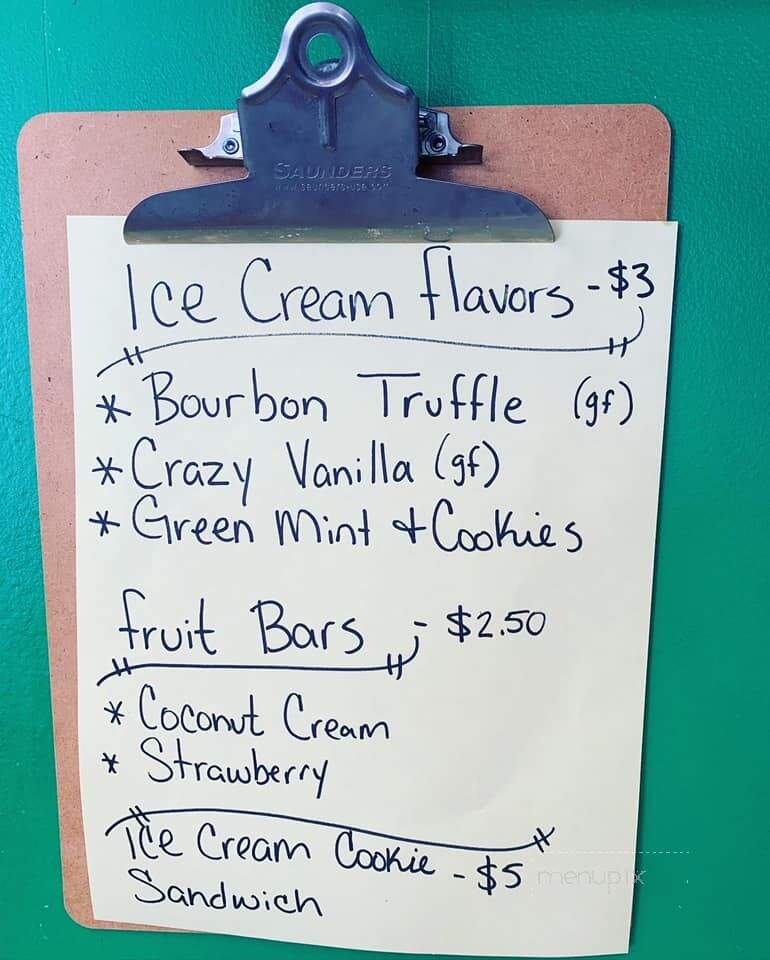 SAUNDERS
www.saunders-usa.com
Ice Cream flavors - $3
* Bourbon Truffle (gf)
* Crazy Vanilla (gf)
* Green Mint + Cookies
fruit Bars - $2.50
* Coconut Cream
* Strawberry
Ice Cream Cookie - $5
Sandwich
menupix